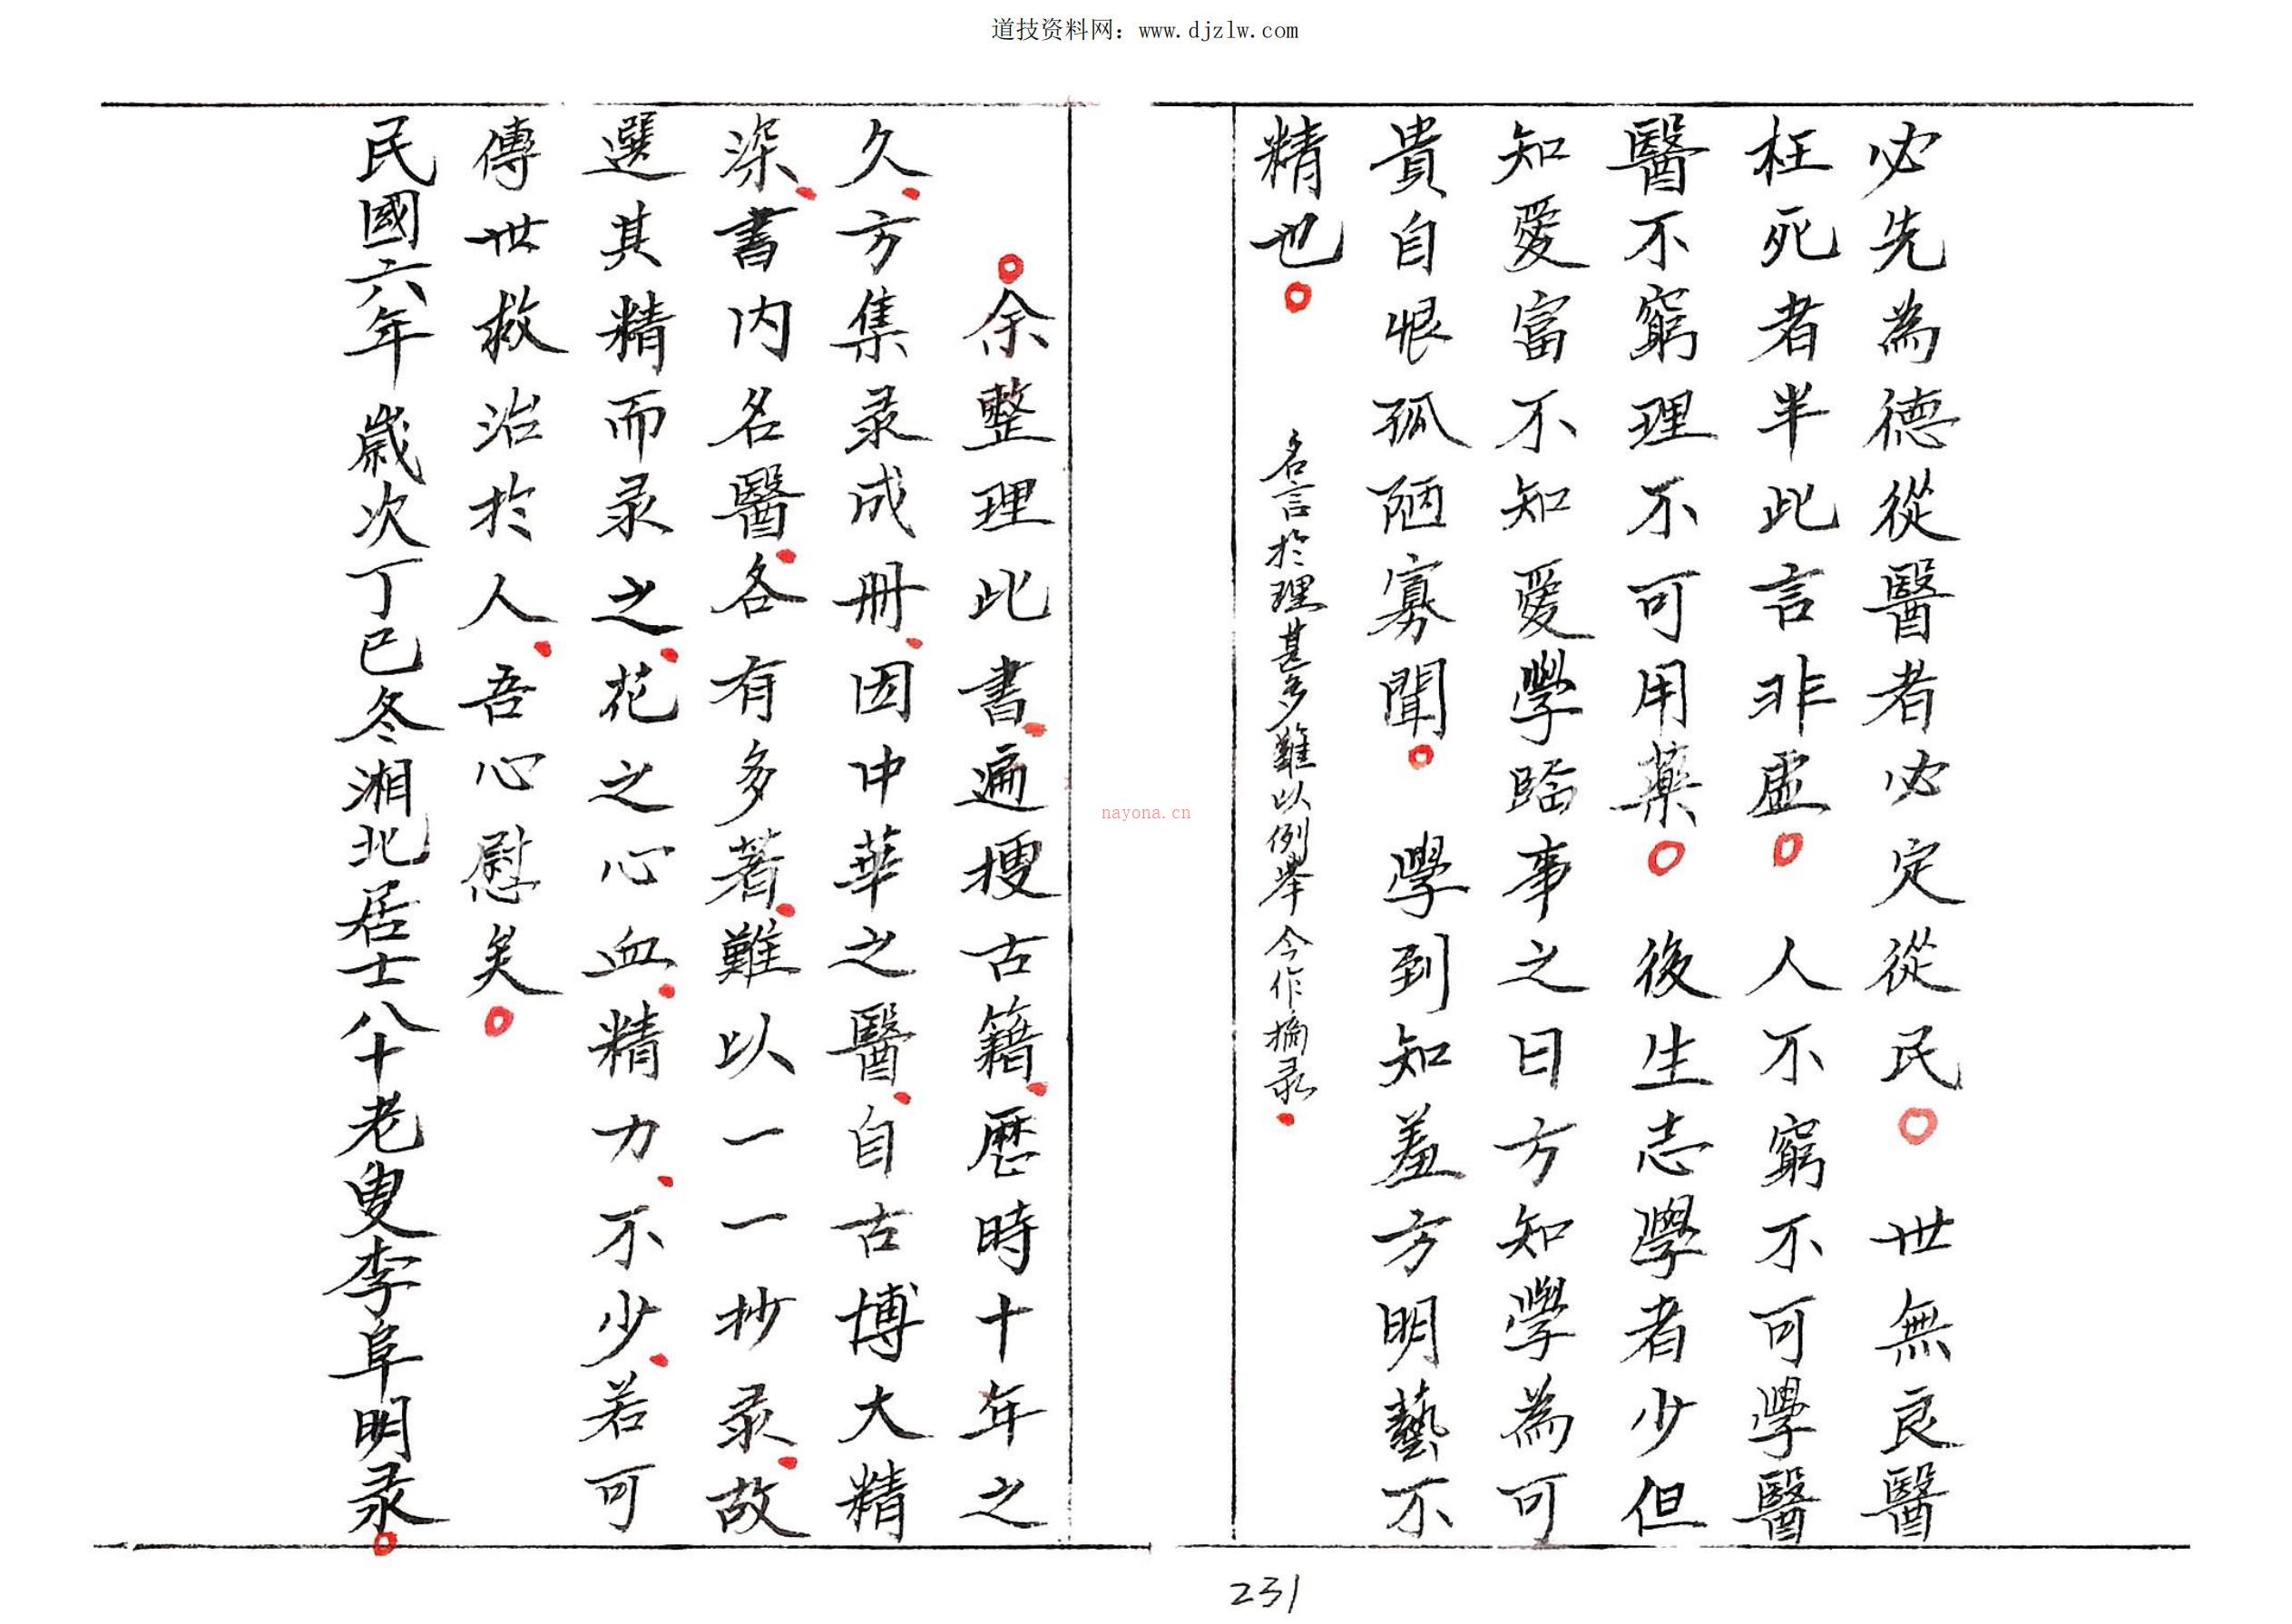 道技资料网：www.djzlw.com
必先為德從醫者必定從民。世無良醫
枉死者半此言非虛。人不窮不可學醫
醫不窮理不可用藥。後生志學者少但
知愛富不知愛學臨事之日方知學為可
貴自恨孤陋寡聞。學到知羞方明藝不
精也。名言於理甚多難以例舉今作摘录.
。余整理此書.遍搜古籍.歷時十年之
久.方集录成册.因中華之醫.自古博大精
深.書内名醫.各有多著.難以一一抄录.故
選其精而录之.花之心血.精力.不少.若可
傳世救治於人.吾心慰矣。
民國六年歲次丁巳冬湘北居士八十老叟李阜明录。
nayona.cn
231